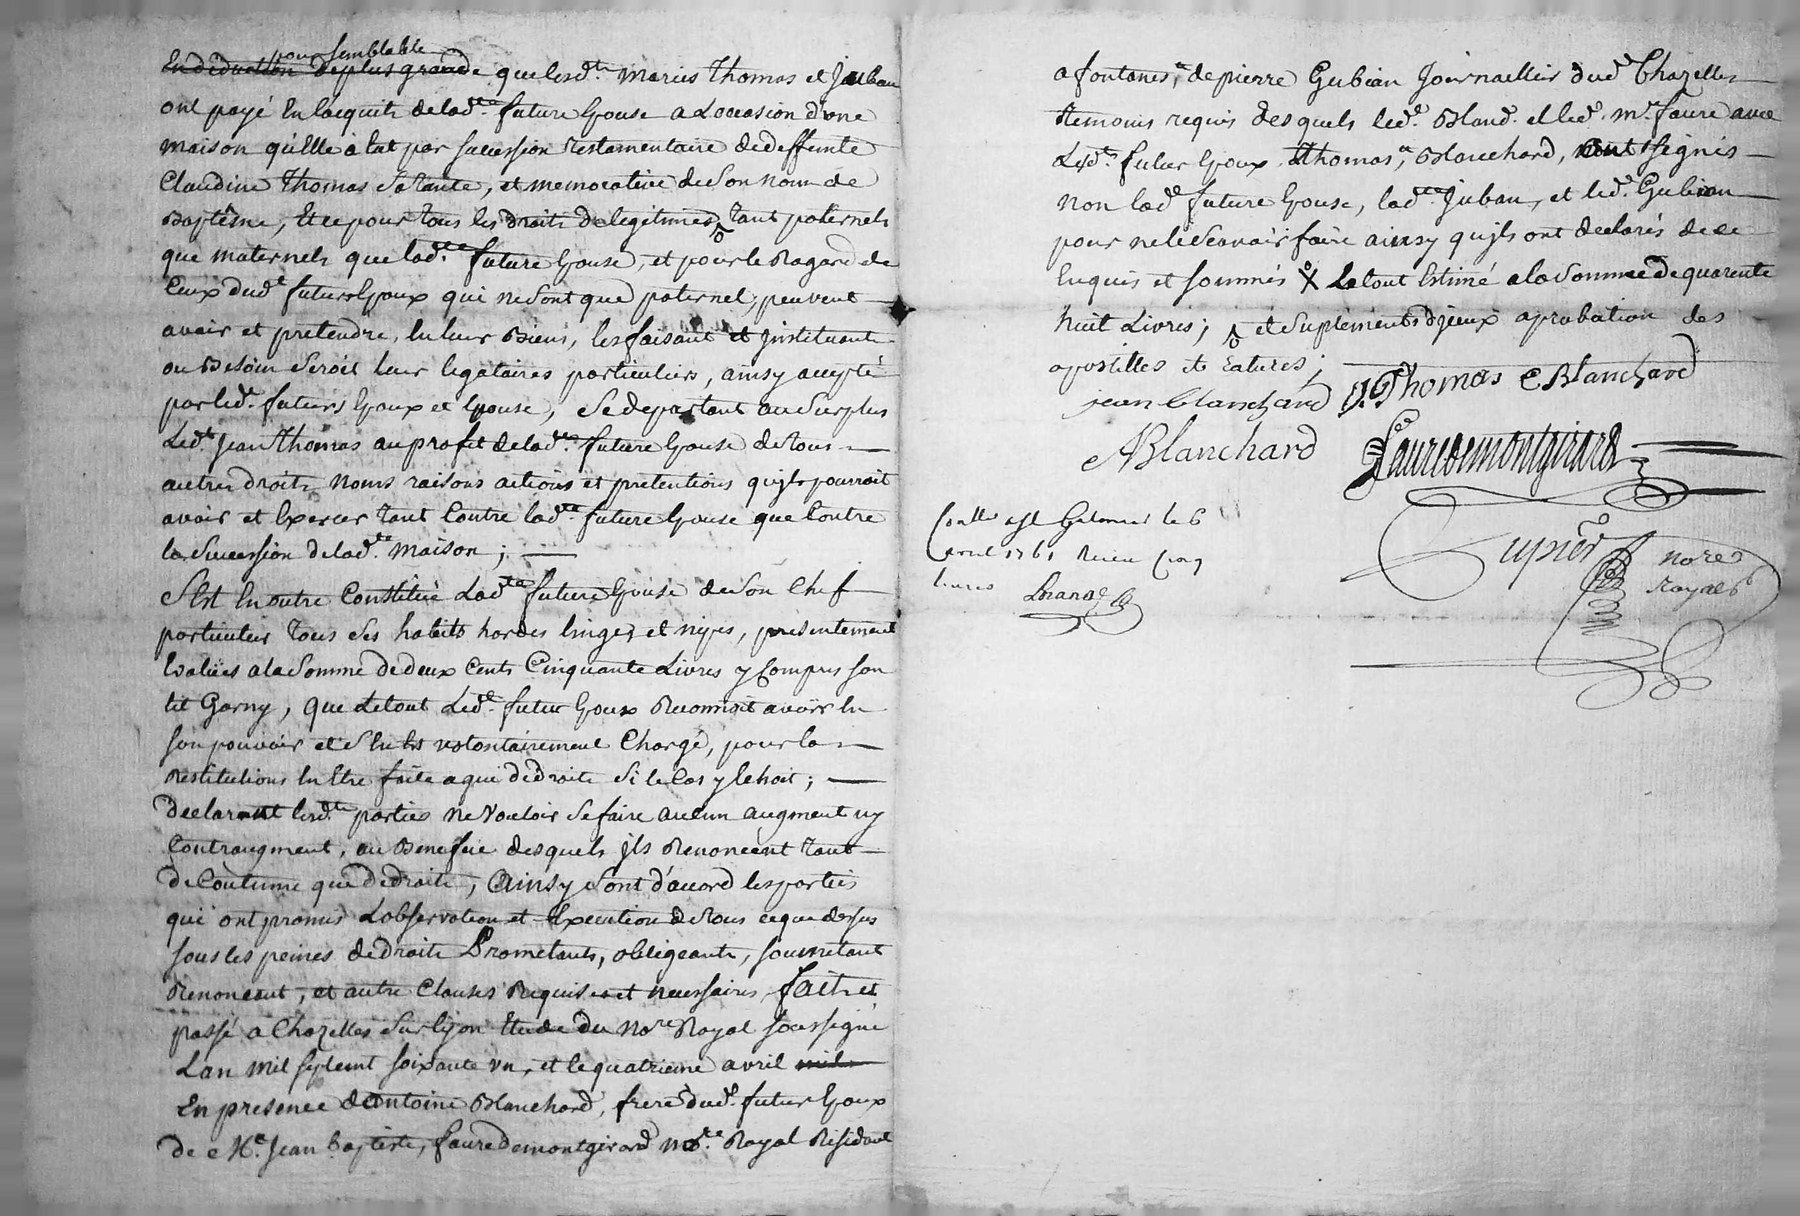 pour semblable
En deduction de plus grande que lesd.ts Maries Thomas et Juban
ont payé En lacquit de lad.te future Epouse a Loccasion d'une
maison qu'elle à Eut par sucession Testamentaire de deffeinte
Claudine Thomas Sa Tante, et memorative de Son nom de
Baptême, Et ce pour Tous les droits de legitimes, Tant paternels
que maternels que lad.te future Epouse, et pour le Regard de
Ceux dud.t futur Epoux qui ne Sont que paternel, peuvent
avoir et pretendre, En leur Biens, les faisant et Jnstituant
ou Besoin Seroit leur legataires particuliers, ainsy accepté
par led.t futurs Epoux et Epouse, Se departant au Surplus
Led.t Jean Thomas au profit de lad.te future Epouse de Tous
autres droits Noms raisons actions et pretentions qu'jls pourroit
avoir et Exercer Tant Contre lad.te future Epouse que Contre
la Sucession de lad.te maison ;
S'Est En outre Constitué Lad.te future Epouse de Son Chef
particulier Tous Ses habits hardes linges et nipes, presentement
Evalüés a la Somme de deux Cents Cinquante Livres y Compris Son
lit Garny, que Letout Led.t futur Epoux Reconnoit avoir En
Son pouvoir et S'en Est volontairement Chargé, pour la
Restitutions En Etre faite a qui de droits Si le Cas y Echoit ;
declarant lesd.tes parties ne Vouloir Se faire aucun augment ny
Contraugment, au Benefice desquels jls Renoncent Tant
de Coutume que de droits, Ainsy Sont d'acord les parties
qui ont promis L'observation et Execution de Tous ce que dessus
sous les peines de droits Prometants, obligeants, soumetant
Renonceant, et autre Clauses Requises et necessaires, fait et
passé a Chazelles Sur Lyon Etude du No.re Royal soussigné
L'an mil sept cent soixante un, et le quatrieme avril mil
En presence d'Antoine Blanchard, frere dud.t futur Epoux
de M.e Jean Baptiste, faure demontgirard no.re Royal Résidant
a fontanes, de pierre Gubian Journaillier dud.t Chazelles
Temoins requis desquels led.t Bland. et led.t m.e faure avec
Lesd.ts futur Epoux Thomas, Blanchard, ont signés
non lad.te future Epouse, lad.te Juban, et led.t Gubian
pour ne le Scavoir faire ainsy qu'jls ont declarés de ce
Enquis et sommés Letout Estimé a la Somme de quarente
huit Livres ; et Suplements d'jeux aprobation des
apostilles et ratures ;
jean blanchard J. Thomas C Blanchard
A Blanchard Faure demontgirard
Conllé est Galmier le 6
avril 1761 Receu Cinq
livres
Cupier no.re
Royal